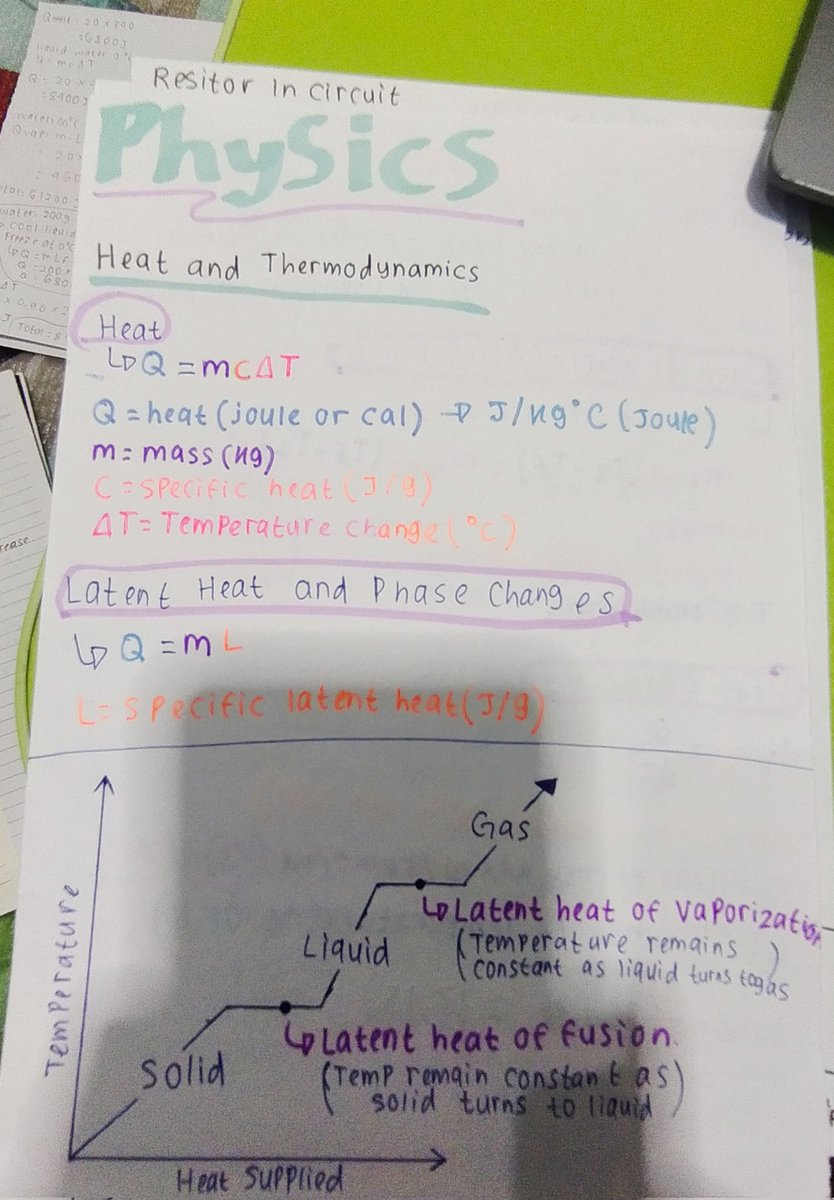 Resitor in circuit
Physics
Heat and Thermodynamics
Heat
↳ Q = mcΔT
Q = heat (joule or cal) → J/kg°C (Joule)
m = mass (kg)
C = specific heat (J/g)
ΔT = Temperature change (°C)
Latent Heat and Phase Changes
↳ Q = mL
L = specific latent heat (J/g)
Gas
↳ Latent heat of vaporization
(Temperature remains
constant as liquid turns to gas)
Liquid
↳ Latent heat of fusion
(Temp remain constant as
solid turns to liquid)
Solid
Temperature
Heat supplied
liquid water 0°C
Q = mcΔT
rease